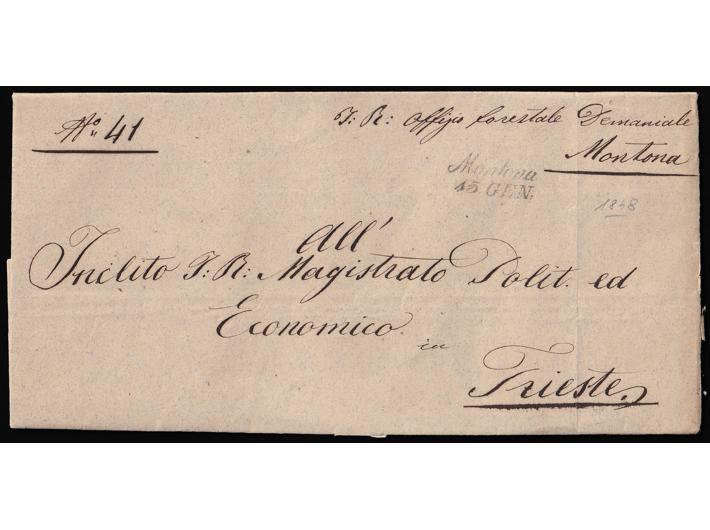 No 41
I: R: Offizio forestale Demaniale
Montona
Montona
15. GEN.
1848
All'
Inclito I: R: Magistrato Polit. ed
Economico
in
Trieste